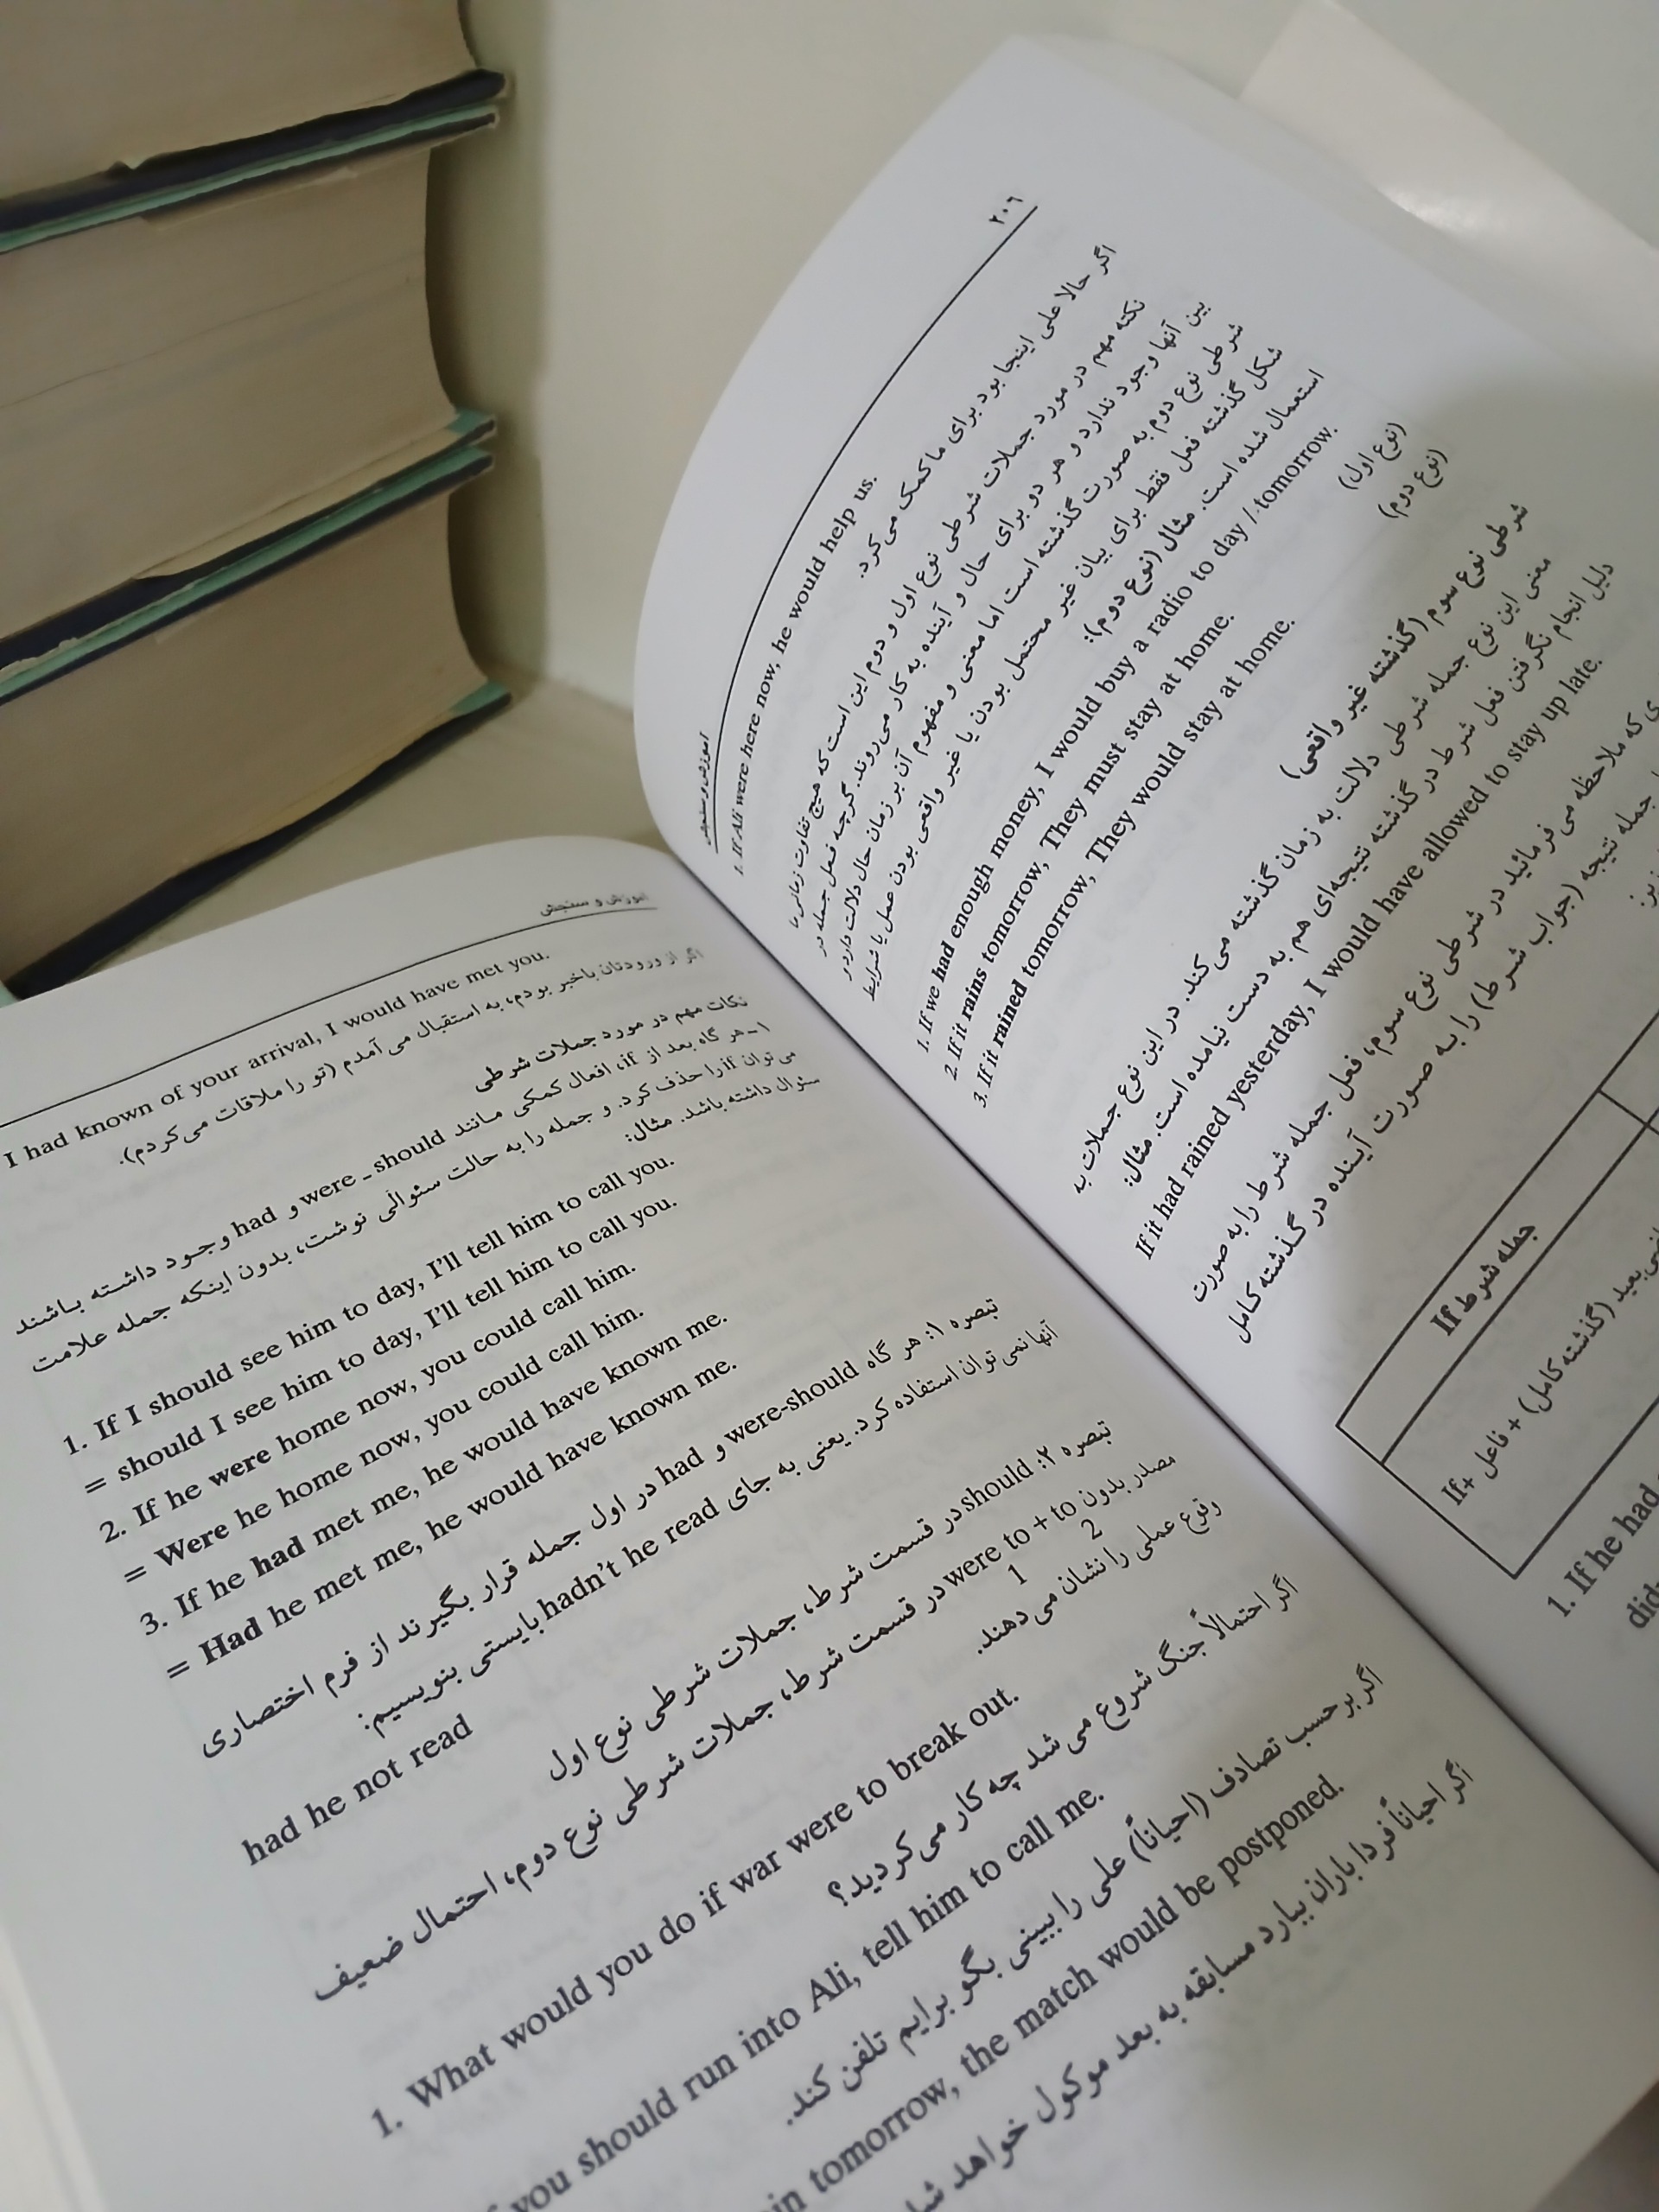 ۲۰۶
آموزش و سنجش
1. If Ali were here now, he would help us.
اگر حالا علی اینجا بود برای ما کمک می‌کرد.
نکته مهم در مورد جملات شرطی نوع اول و دوم این است که هیچ تفاوت زمانی ما
بین آنها وجود ندارد و هر دو برای حال و آینده به کار می‌روند. گرچه فعل جمله در
شرطی نوع دوم به صورت گذشته است اما معنی و مفهوم آن بر زمان حال دلالت دارد و
شکل گذشته فعل فقط برای بیان غیر محتمل بودن یا غیر واقعی بودن عمل یا شرایط
استعمال شده است. مثال (نوع دوم):
1. If we had enough money, I would buy a radio to day / tomorrow.
2. If it rains tomorrow, They must stay at home.
(نوع اول)
3. If it rained tomorrow, They would stay at home.
(نوع دوم)
شرطی نوع سوم (گذشته غیر واقعی)
معنی این نوع جمله شرطی دلالت به زمان گذشته می‌کند. در این نوع جملات به
دلیل انجام نگرفتن فعل شرط در گذشته نتیجه‌ای هم به دست نیامده است. مثال:
If it had rained yesterday, I would have allowed to stay up late.
که ملاحظه می فرمائید در شرطی نوع سوم، فعل جمله شرط را به صورت
جمله نتیجه (جواب شرط) را به صورت آینده در گذشته کامل
جمله شرط If
If+ فاعل + (گذشته کامل) بعید
1. If he had
آموزش و سنجش
I had known of your arrival, I would have met you.
اگر از ورودتان باخبر بودم، به استقبال می آمدم (تو را ملاقات می‌کردم).
نکات مهم در مورد جملات شرطی
۱ـ هر گاه بعد از if، افعال کمکی مانند were ـ should و had وجود داشته باشند
می توان if را حذف کرد. و جمله را به حالت سئوالی نوشت، بدون اینکه جمله علامت
سئوال داشته باشد. مثال:
1. If I should see him to day, I'll tell him to call you.
= should I see him to day, I'll tell him to call you.
2. If he were home now, you could call him.
= Were he home now, you could call him.
3. If he had met me, he would have known me.
= Had he met me, he would have known me.
تبصره ۱: هر گاه were-should و had در اول جمله قرار بگیرند از فرم اختصاری
آنها نمی توان استفاده کرد. یعنی به جای hadn't he read بایستی بنویسیم:
had he not read
تبصره ۲: should در قسمت شرط، جملات شرطی نوع اول
مصدر بدون were to + to در قسمت شرط، جملات شرطی نوع دوم، احتمال ضعیف
2
1
وقوع عملی را نشان می دهند.
1. What would you do if war were to break out.
اگر احتمالاً جنگ شروع می شد چه کار می‌کردید؟
you should run into Ali, tell him to call me.
اگر بر حسب تصادف (احیاناً) علی را ببینی بگو برایم تلفن کند.
tomorrow, the match would be postponed.
اگر احیاناً فردا باران ببارد مسابقه به بعد موکول خواهد